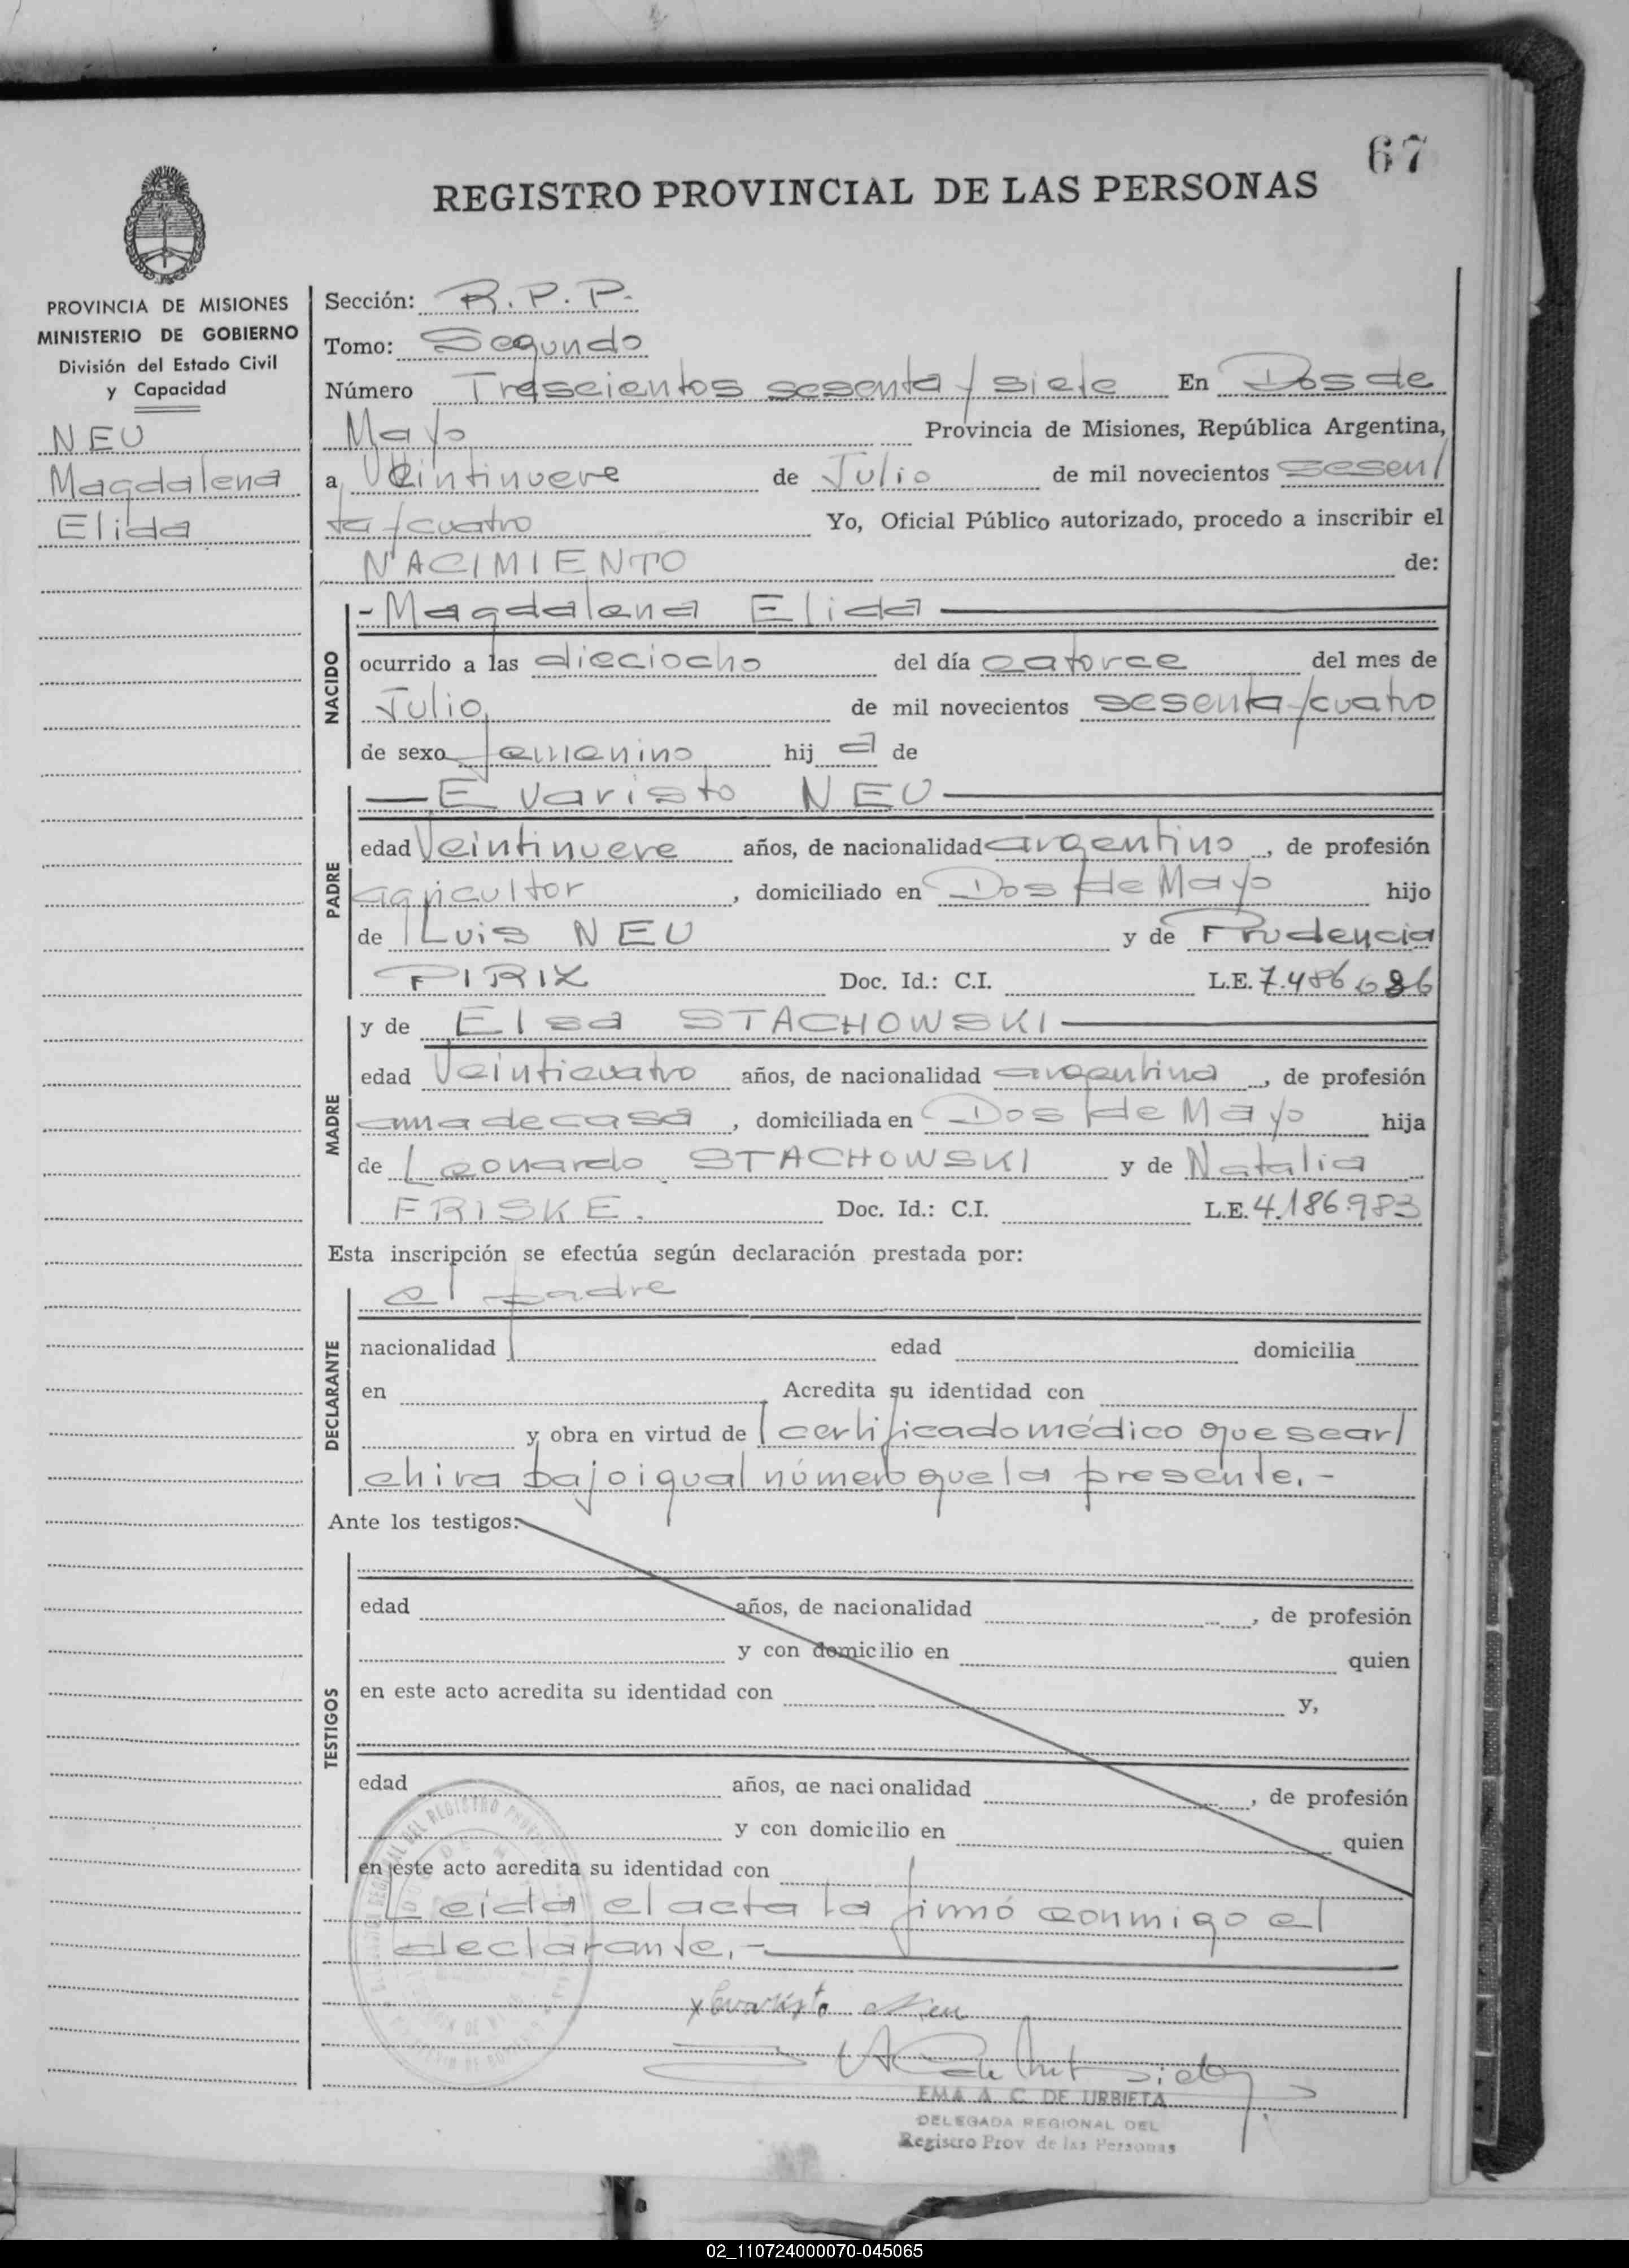 67
REGISTRO PROVINCIAL DE LAS PERSONAS
PROVINCIA DE MISIONES
MINISTERIO DE GOBIERNO
División del Estado Civil
y Capacidad
NEU
Magdalena
Elida
Sección: R.P.P.
Tomo: Segundo
Número Trescientos sesenta y siete En Dos de
Mayo Provincia de Misiones, República Argentina,
a Veintinueve de Julio de mil novecientos sesen/
ta y cuatro Yo, Oficial Público autorizado, procedo a inscribir el
NACIMIENTO de:
NACIDO
- Magdalena Elida
ocurrido a las dieciocho del día catorce del mes de
Julio de mil novecientos sesenta y cuatro
de sexo femenino hij a de
PADRE
Evaristo NEU
edad Veintinueve años, de nacionalidad argentino, de profesión
agricultor, domiciliado en Dos de Mayo hijo
de Luis NEU y de Prudencia
PIRIZ Doc. Id.: C.I. L.E. 7.486.686
MADRE
y de Elsa STACHOWSKI
edad Veinticuatro años, de nacionalidad argentina, de profesión
ama de casa, domiciliada en Dos de Mayo hija
de Leonardo STACHOWSKI y de Natalia
FRISKE. Doc. Id.: C.I. L.E. 4.186.983
Esta inscripción se efectúa según declaración prestada por:
DECLARANTE
el padre
nacionalidad edad domicilia
en Acredita su identidad con
y obra en virtud de certificado médico que se ar/
chiva bajo igual número que la presente.-
Ante los testigos:
TESTIGOS
edad años, de nacionalidad , de profesión
y con domicilio en quien
en este acto acredita su identidad con y,
edad años, de nacionalidad , de profesión
y con domicilio en quien
en este acto acredita su identidad con
Leida el acta la firmó conmigo el
declarante.-
x Evaristo Neu
EMA A. C. DE URBIETA
DELEGADA REGIONAL DEL
Registro Prov. de las Personas
02_110724000070-045065